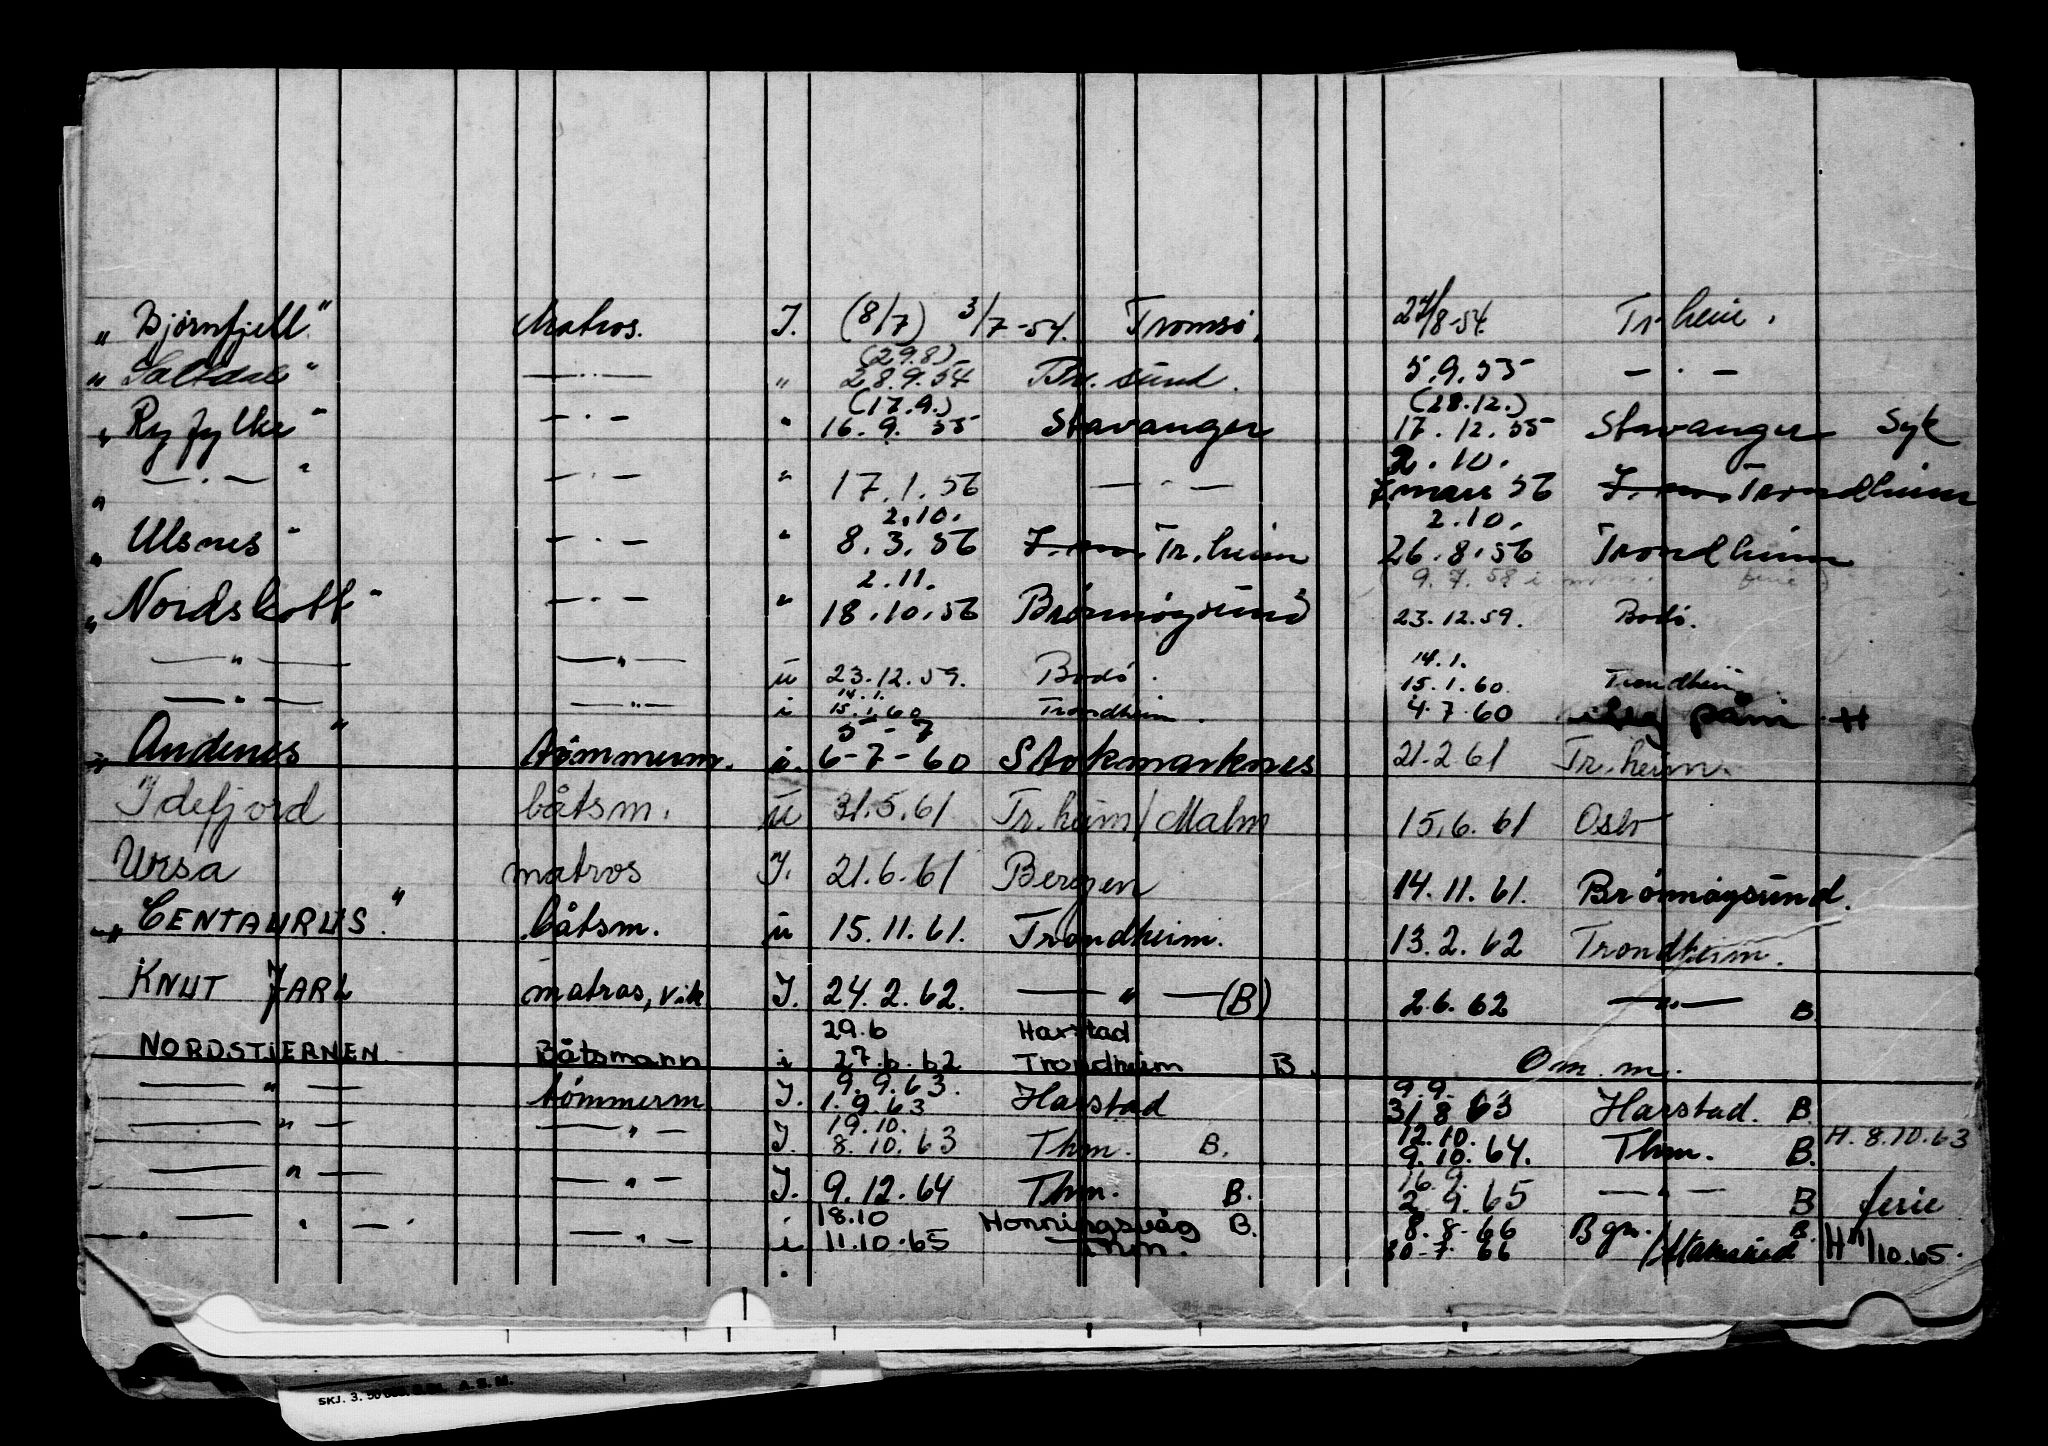 „ Bjørnfjell" Matros. I. (8/7) 3/7-54. Tromsø. 24/8-54. Tr.heim.
(29.8)
„ Saltdal" —··— „ 28.9.54 Br. sund. 5.9.55 — · —
(17.9.) (28.12.)
„ Ryfylke" — · — " 16.9.55 Stavanger 17.12.55 Stavanger Syk
2.10.
„ — · — " — · — " 17.1.56 — · — 7 mars 56 Trondheim
2.10. 2.10.
„ Ulsnes" — · — " 8.3.56 Tr.heim 26.8.56 Trondheim
2.11. 9.7.58 i ferie
„ Nordskott" — · — " 18.10.56 Brønnøysund 23.12.59. Bodø.
14.1.
— „ — — „ — u 23.12.59. Bodø. 15.1.60. Trondheim
14.1.
— „ — — „ — i 15.1.60 Trondheim. 4.7.60 H
5 - 7
„ Andenes" tømmerm. i. 6-7-60 Stokmarknes 21.2.61 Tr.heim.
Idefjord båtsm. u 31.5.61 Tr.heim/Malm 15.6.61 Oslo
Ursa matros I. 21.6.61 Bergen 14.11.61. Brønnøysund.
„ CENTAURUS." båtsm. u 15.11.61. Trondheim. 13.2.62 Trondheim.
KNUT JARL matros, vik I. 24.2.62. — „ — (B) 2.6.62 — „ — B.
29.6 Harstad
NORDSTJERNEN Båtsmann i 27.6.62 Trondheim B. Om. m.
9.9.63. 9.9.
— „ — tømmerm I. 1.9.63 Harstad 31.8.63 Harstad. B.
19.10. 12.10.
— „ — — „ — I. 8.10.63 Thm. B. 9.10.64. Thm. B. H. 8.10.63
16.9.
— „ — — „ — I. 9.12.64 Thm. B. 2.9.65 — „ — B ferie
18.10 Honningsvåg B. 8.8.66 Bgn. B.
— „ — — „ — i 11.10.65 Thm. 30-7.66 H 11/10.65.
SKJ. 3. A. S. M.